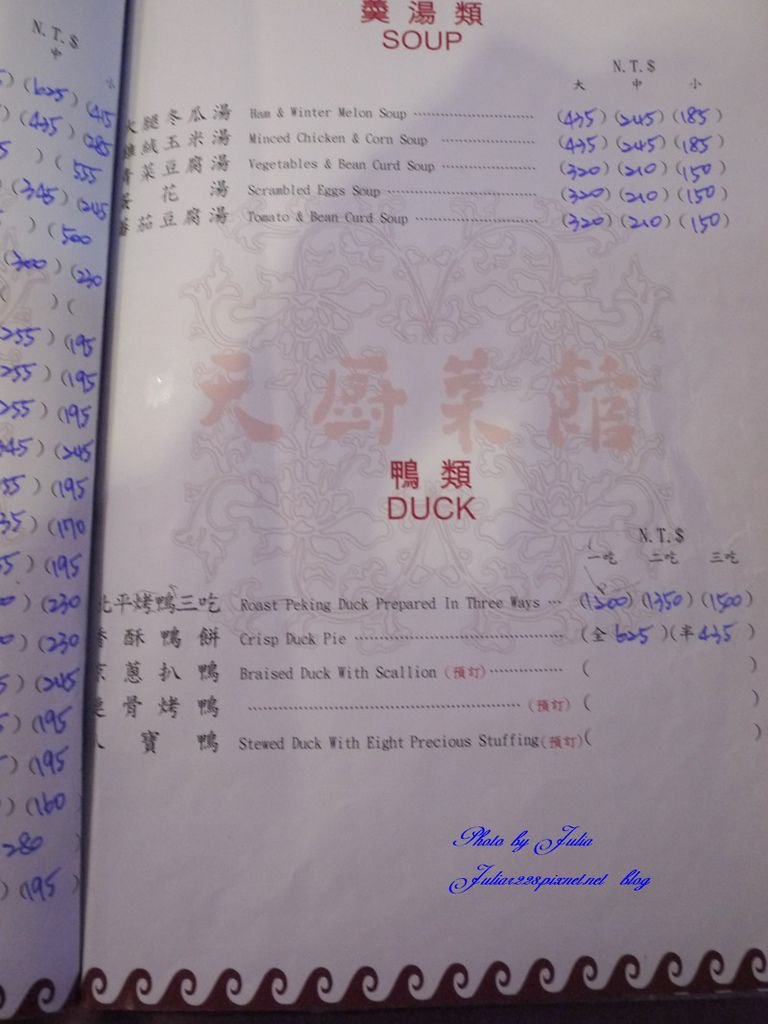 N.T.$
中 小
(625) (415
(435) (285
) ( 555
(345) (245
) (500
(300) (230
) (
255) (195
255) (195
255) (195
345) (245
55) (195
35) (170
5) (195
) (230
) (230
5) (245
5) (195
) (195
) (160
280
) (195
羹湯類
SOUP
N.T.$
大 中 小
火腿冬瓜湯 Ham & Winter Melon Soup (435) (245) (185)
雞絨玉米湯 Minced Chicken & Corn Soup (435) (245) (185)
青菜豆腐湯 Vegetables & Bean Curd Soup (320) (210) (150)
蛋花湯 Scrambled Eggs Soup (320) (210) (150)
蕃茄豆腐湯 Tomato & Bean Curd Soup (320) (210) (150)
天廚菜館
鴨類
DUCK
N.T.$
一吃 二吃 三吃
北平烤鴨三吃 Roast Peking Duck Prepared In Three Ways (1200) (1350) (1500)
香酥鴨餅 Crisp Duck Pie (全 625) (半 435)
京蔥扒鴨 Braised Duck With Scallion (預訂) ( )
骨烤鴨 (預訂) ( )
八寶鴨 Stewed Duck With Eight Precious Stuffing (預訂) ( )
Photo by Julia
Julia1228.pixnet.net blog